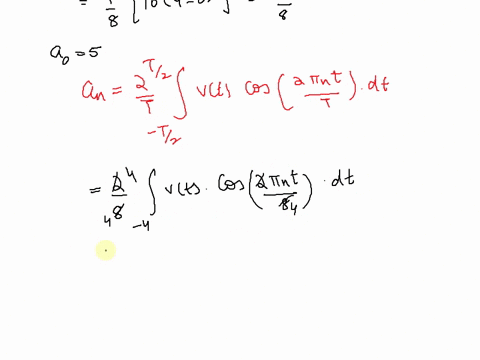 = 1/8 [10(4-0)] = /8
a₀ = 5
aₙ = 2/T ∫_{-T/2}^{T/2} v(t) cos(2πnt/T) · dt
= 2/8 4 ∫_{-4}^{4} v(t) · cos(2πnt/8 4) · dt